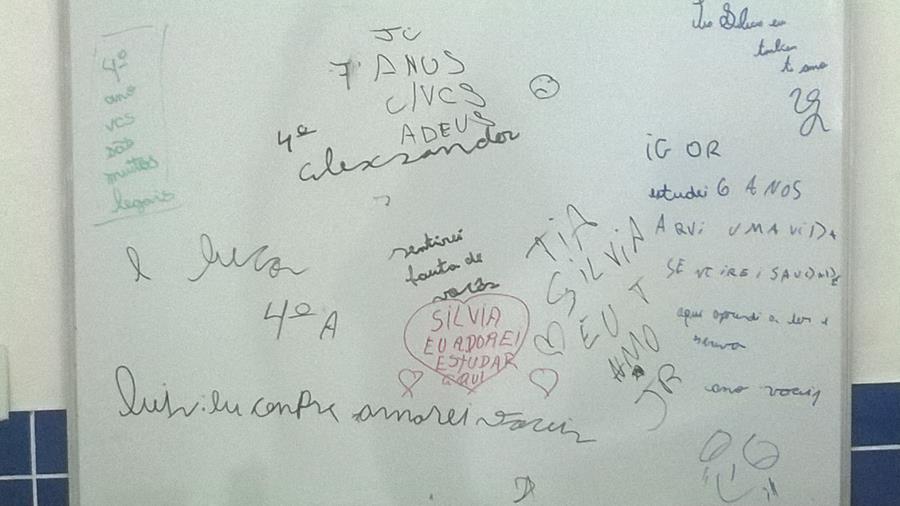 4º
ano
vcs
são
muitos
legais
Já
7 ANOS
C/VCS
ADEUS
4º
alexsandor
l luca
4º A
sentirei
fauta de
vocês
SILVIA
EU ADOREI
ESTUDAR
AQUI
TIA
GILVIA
EU T
AMO
JR
também
t amo
IGOR
estudei 6 ANOS
AQUI UMA VIDA
SENTIREI SAUDADE
aqui aprendi a ler e
amo voceis